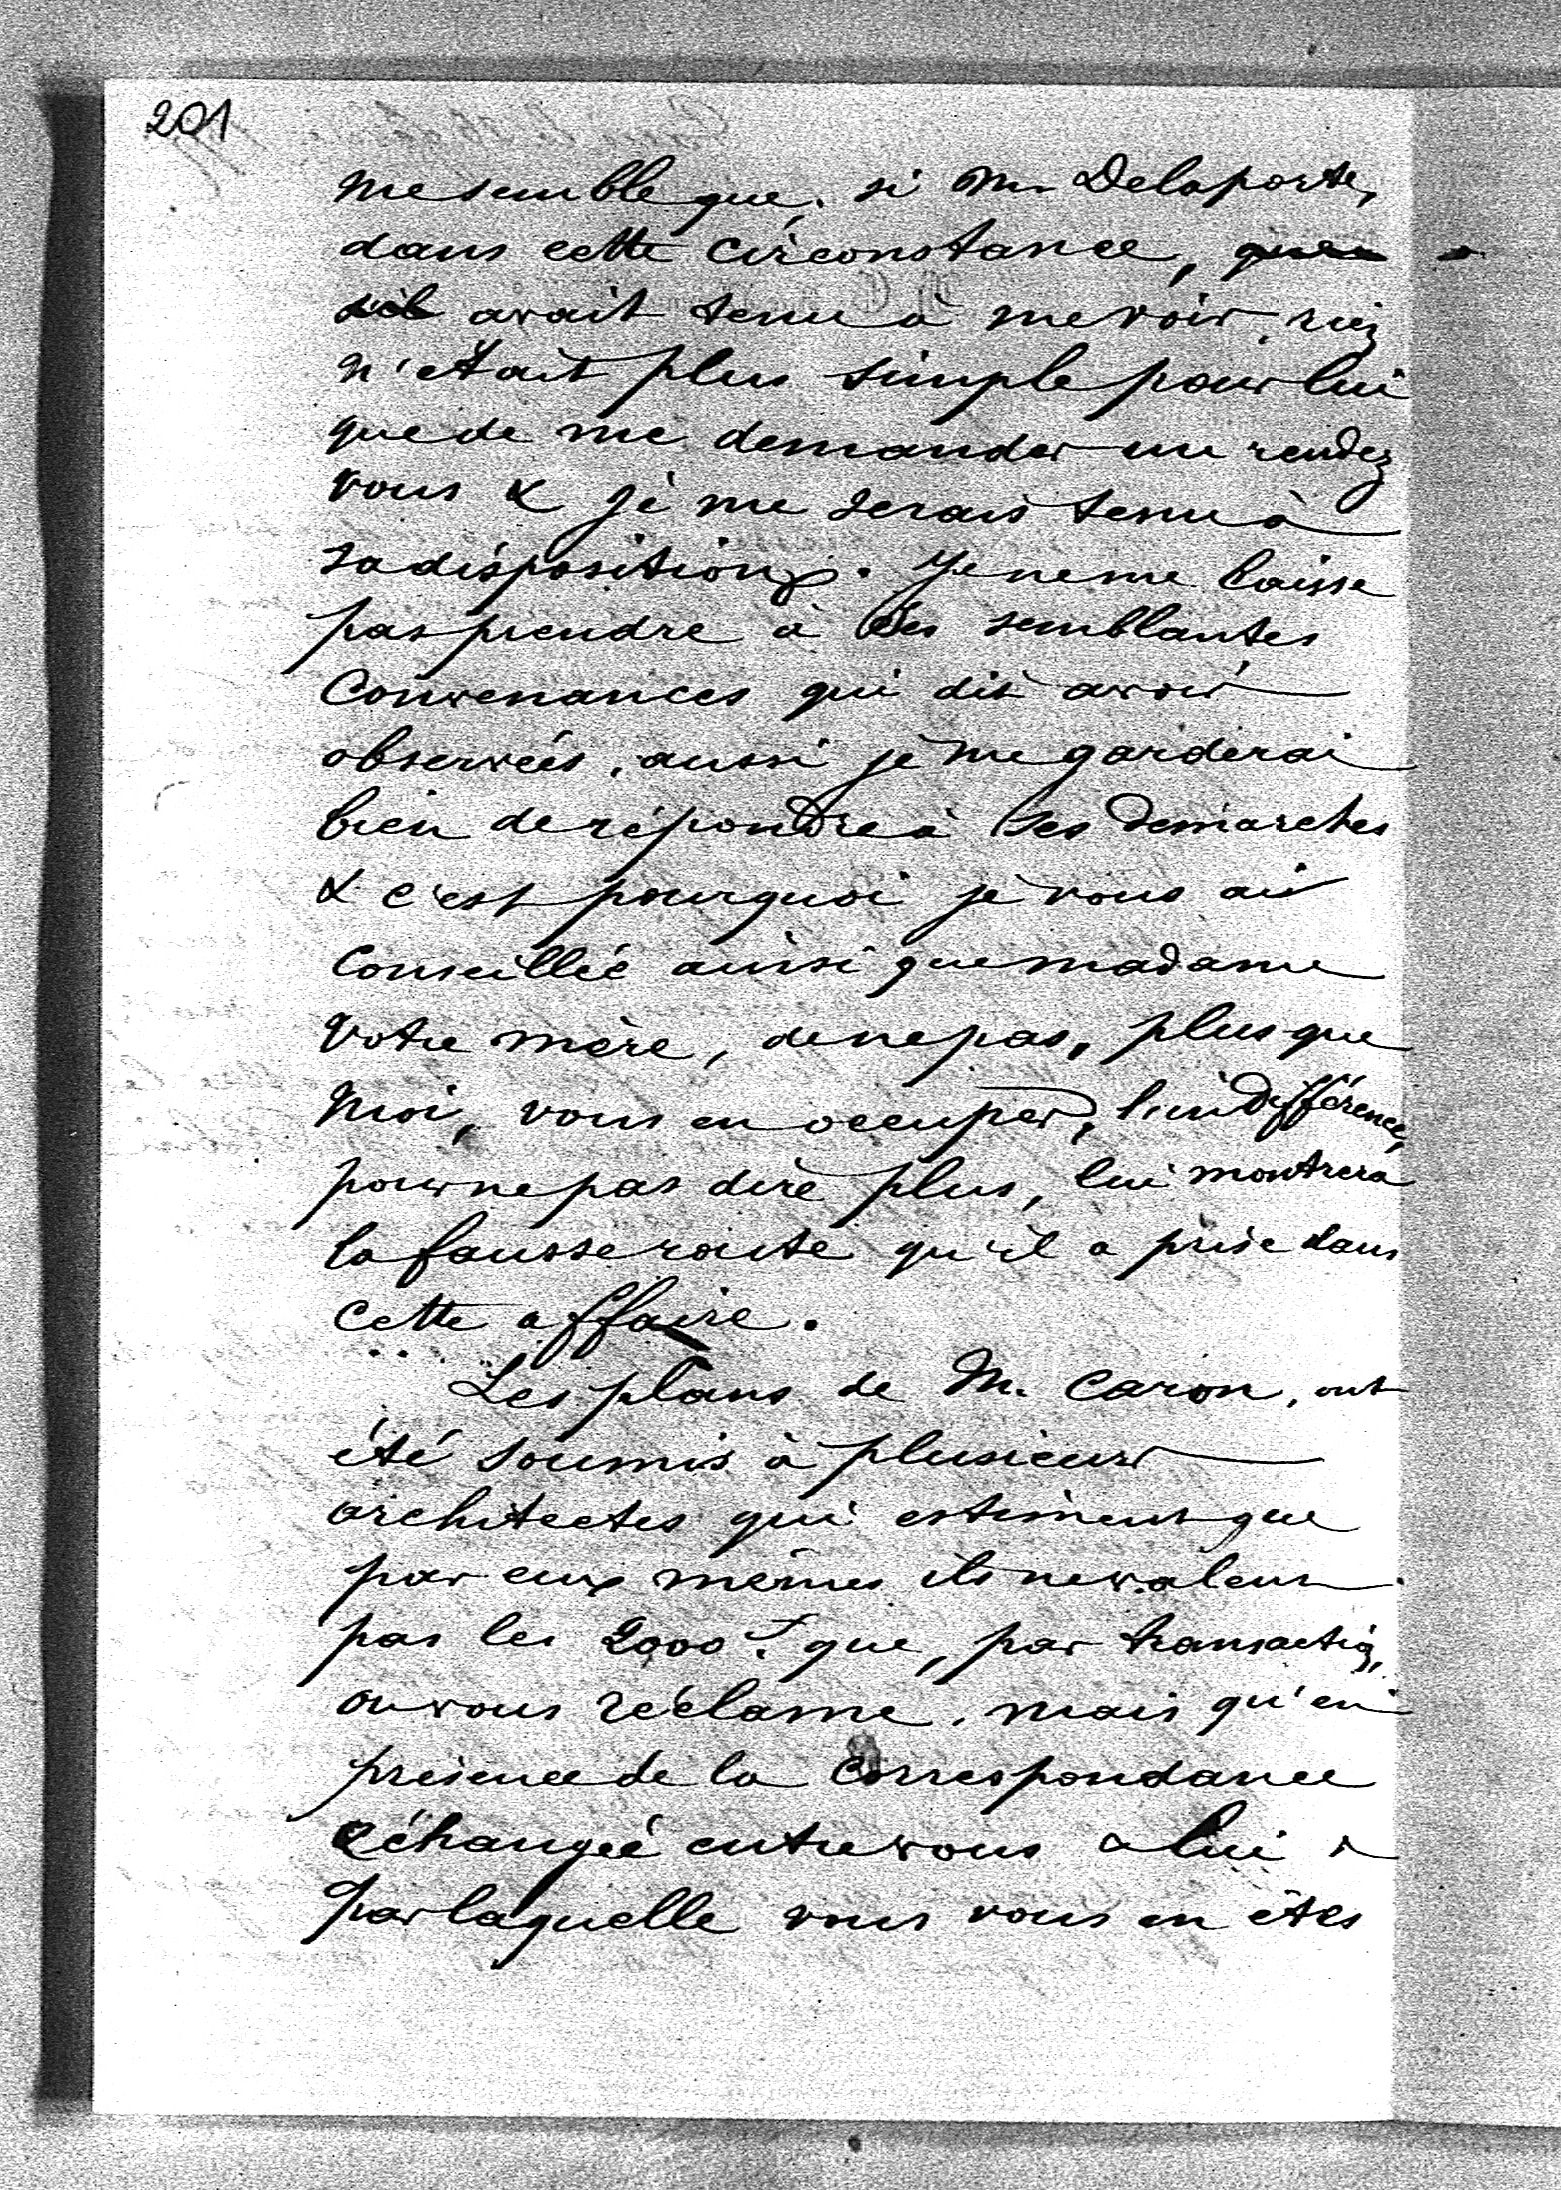 201
me semble que, si Mr Delaporte,
dans cette circonstance, que
s'il avait tenu à me voir, rien
n'était plus simple pour lui
que de me demander un rendez
vous & je me serais tenu à
sa disposition. Je ne me laisse
pas prendre à des semblantes
Convenances qui dit avoir
observées, aussi je me garderai
bien de répondre à ses demarches
& c'est pourquoi je vous ai
Conseillée ainsi que madame
votre mère, de ne pas, plus que
moi, vous en occuper, l'indifférence,
pour ne pas dire plus, lui montrera
la fausse route qu'il a prise dans
cette affaire.
Les plans de M. Caron, ont
été soumis à plusieurs
architectes qui estiment que
par eux mêmes ils ne valent
pas les 2000 f. que, par transaction,
on vous réclame, mais qu'en
présence de la Correspondance
échangée entre vous & lui &
par laquelle vous vous en êtes